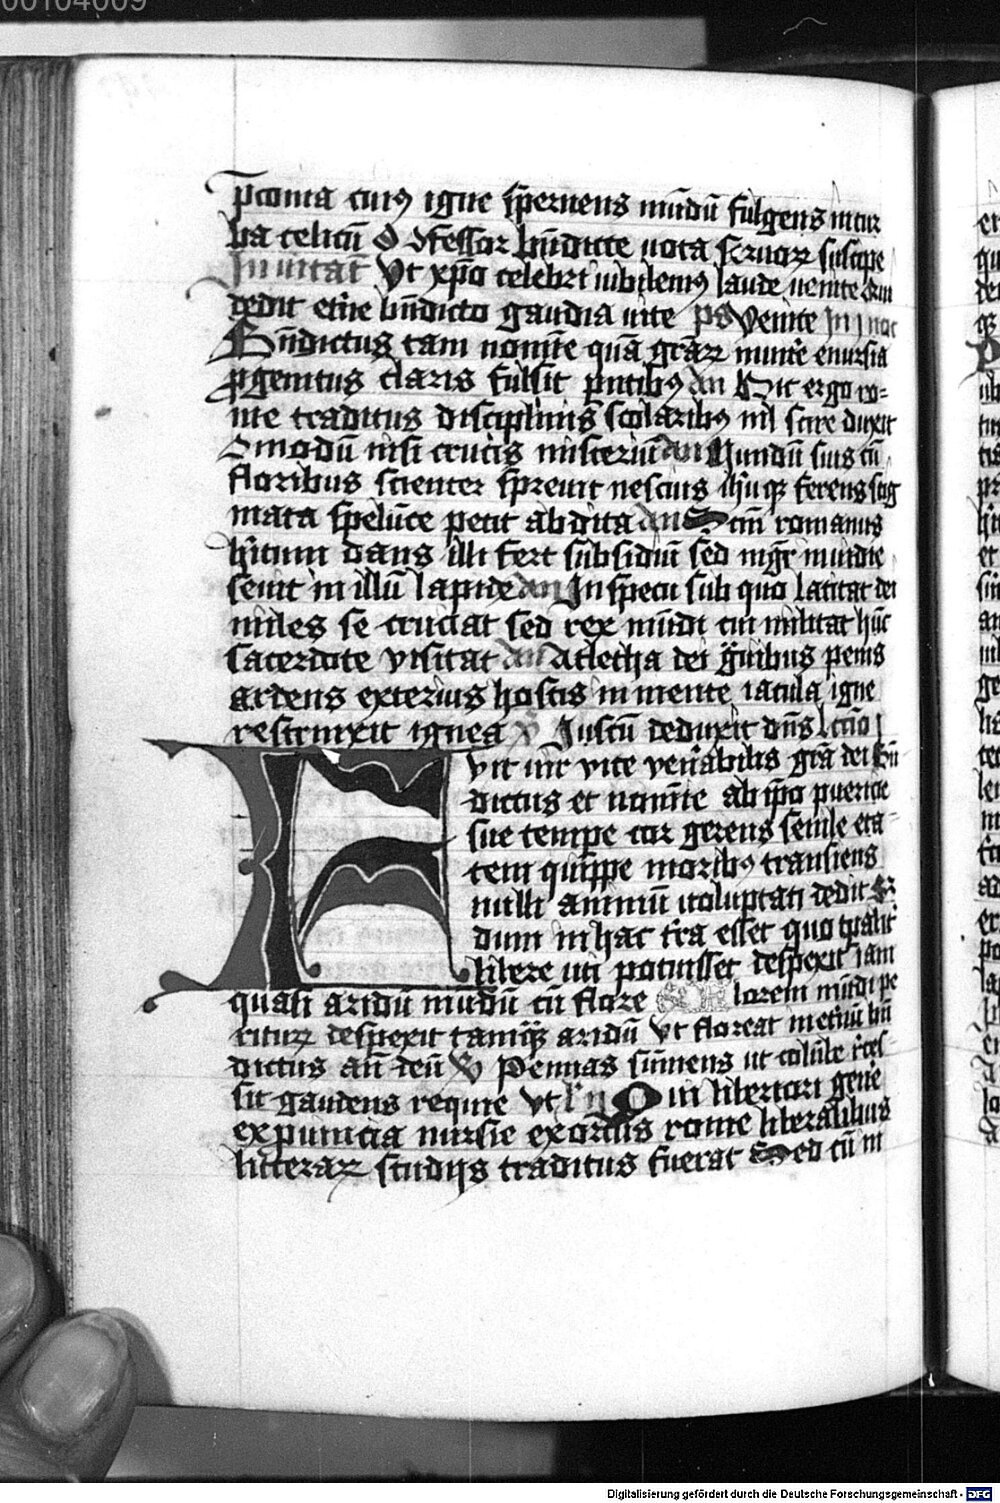 00104009
p̄conia cuiꝯ igne sp̄ernens mūdū fulgens in tur
ba celicū O ꝯfessor bn̄dicte uota seruoꝝ suscipe
Inuitat̄ Vt xp̄o celebrt iubilemꝯ laude uenite
dedit et̄ne bn̄dicto gaudia uite ps Venite In j noc
Bn̄dictus tam nomīe quā gr̄aꝝ mun̄e e nursia
ꝓgenitus claris fulsit p̄ntibꝯ an Hic ergo ro-
me traditus disciplinis scolaribꝯ nil scire duxit
ōmodū nisi crucis misteriū an Mundū suis cū
floribus scienter spreuit nescius ih̄uqꝫ ferens stig
mata spelūce petit abdita an Stm̄ romanus
h̄itum dans illi fert subsidiū sed mgr̄ inuidie
seuit in illū lapide an In specu sub quo latitat dei
miles se cruciat sed rex mūdi cui militat hūc
sacerdote visitat an Atletha dei g̃uibus penis
ardens exterius hostis in mente iacula igne
restrinxit ignea ꝟ Iustū deduxit dn̄s lctio j
Fvit uir vite ven̄abilis gr̄a dei bn̄
dictus et nomīe ab ip̄o puericie
sue tempe cor gerens senile eta-
tem quippe moribꝯ transiens
nulli animū uoluptati dedit S
dum in hac t̄ra esset quo tp̄alit̄
libere uti potuisset despexit iam
quasi aridū mūdū cū flore Florem mūdi pe
rituꝝ despexit tamqꝫ aridū Vt floreat in et̄nū bn̄
dictus an̄ deū ꝟ Pennas sūmens ut colūbe r̄ces
sit gaudens requie Vt l' ij Qui libertori gen̄e
ex puincia nursie exortus rome liberalibus
litteraꝝ studijs traditus fuerat Sed cū in
Digitalisierung gefördert durch die Deutsche Forschungsgemeinschaft - DFG